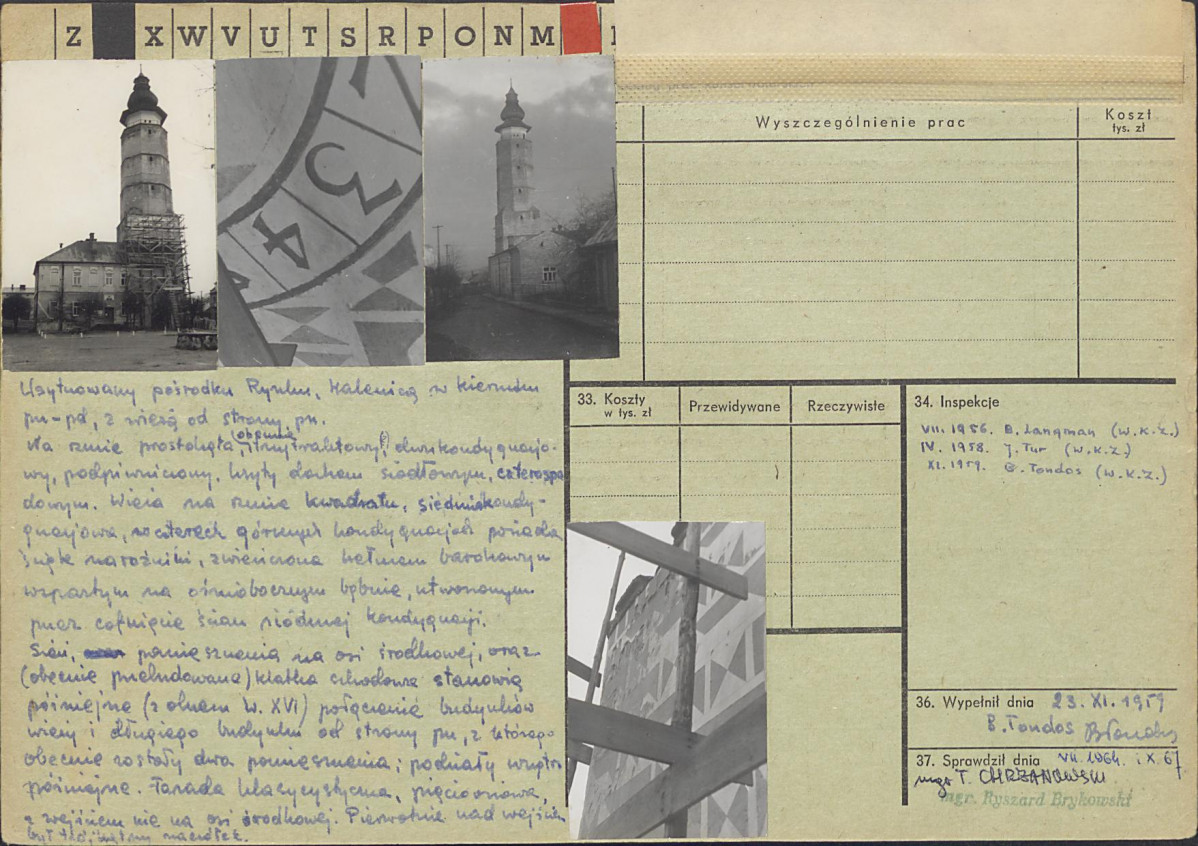 Z X W V U T S R P O N M
3
4
Wyszczególnienie prac
Koszt
tys. zł
Usytuowany pośrodku Rynku, kalenicą w kierunku
pn-pd, z wieżą od strony pn.
Na rzucie prostokąta, (obecnie) trójtraktowy(?), dwukondygnacjo-
wy, podpiwniczony, kryty dachem siodłowym, czterospa
dowym. Wieża na rzucie kwadratu, siedmiokondy-
gnacjowa, w czterech górnych kondygnacjach posiada
ścięte narożniki, zwieńczona hełmem barokowym
wspartym na ośmiobocznym bębnie, utworzonym
przez cofnięcie ścian siódmej kondygnacji.
Sień, pomieszczenia na osi środkowej, oraz
(obecnie przebudowana) klatka schodowa stanowią
późniejsze (z okresu w. XVI) połączenie budynków
wieży i długiego budynku od strony pn, z którego
obecnie zostały dwa pomieszczenia; podziały wnętrz
późniejsze. Fasada klasycystyczna, pięcioosiowa,
z wejściem nie na osi środkowej. Pierwotnie nad wejściem
był
33. Koszty
w tys. zł
Przewidywane
Rzeczywiste
34. Inspekcje
VII. 1956. B. Langman (W.K.Z.)
IV. 1958. J. Tur (W.K.Z.)
XI. 1959. B. Tondos (W.K.Z.)
36. Wypełnił dnia 23. XI. 1959
B. Tondos BTondos
37. Sprawdził dnia VII. 1964. i X. 67
mgr T. CHRZANOWSKI
mgr. Ryszard Brykowski